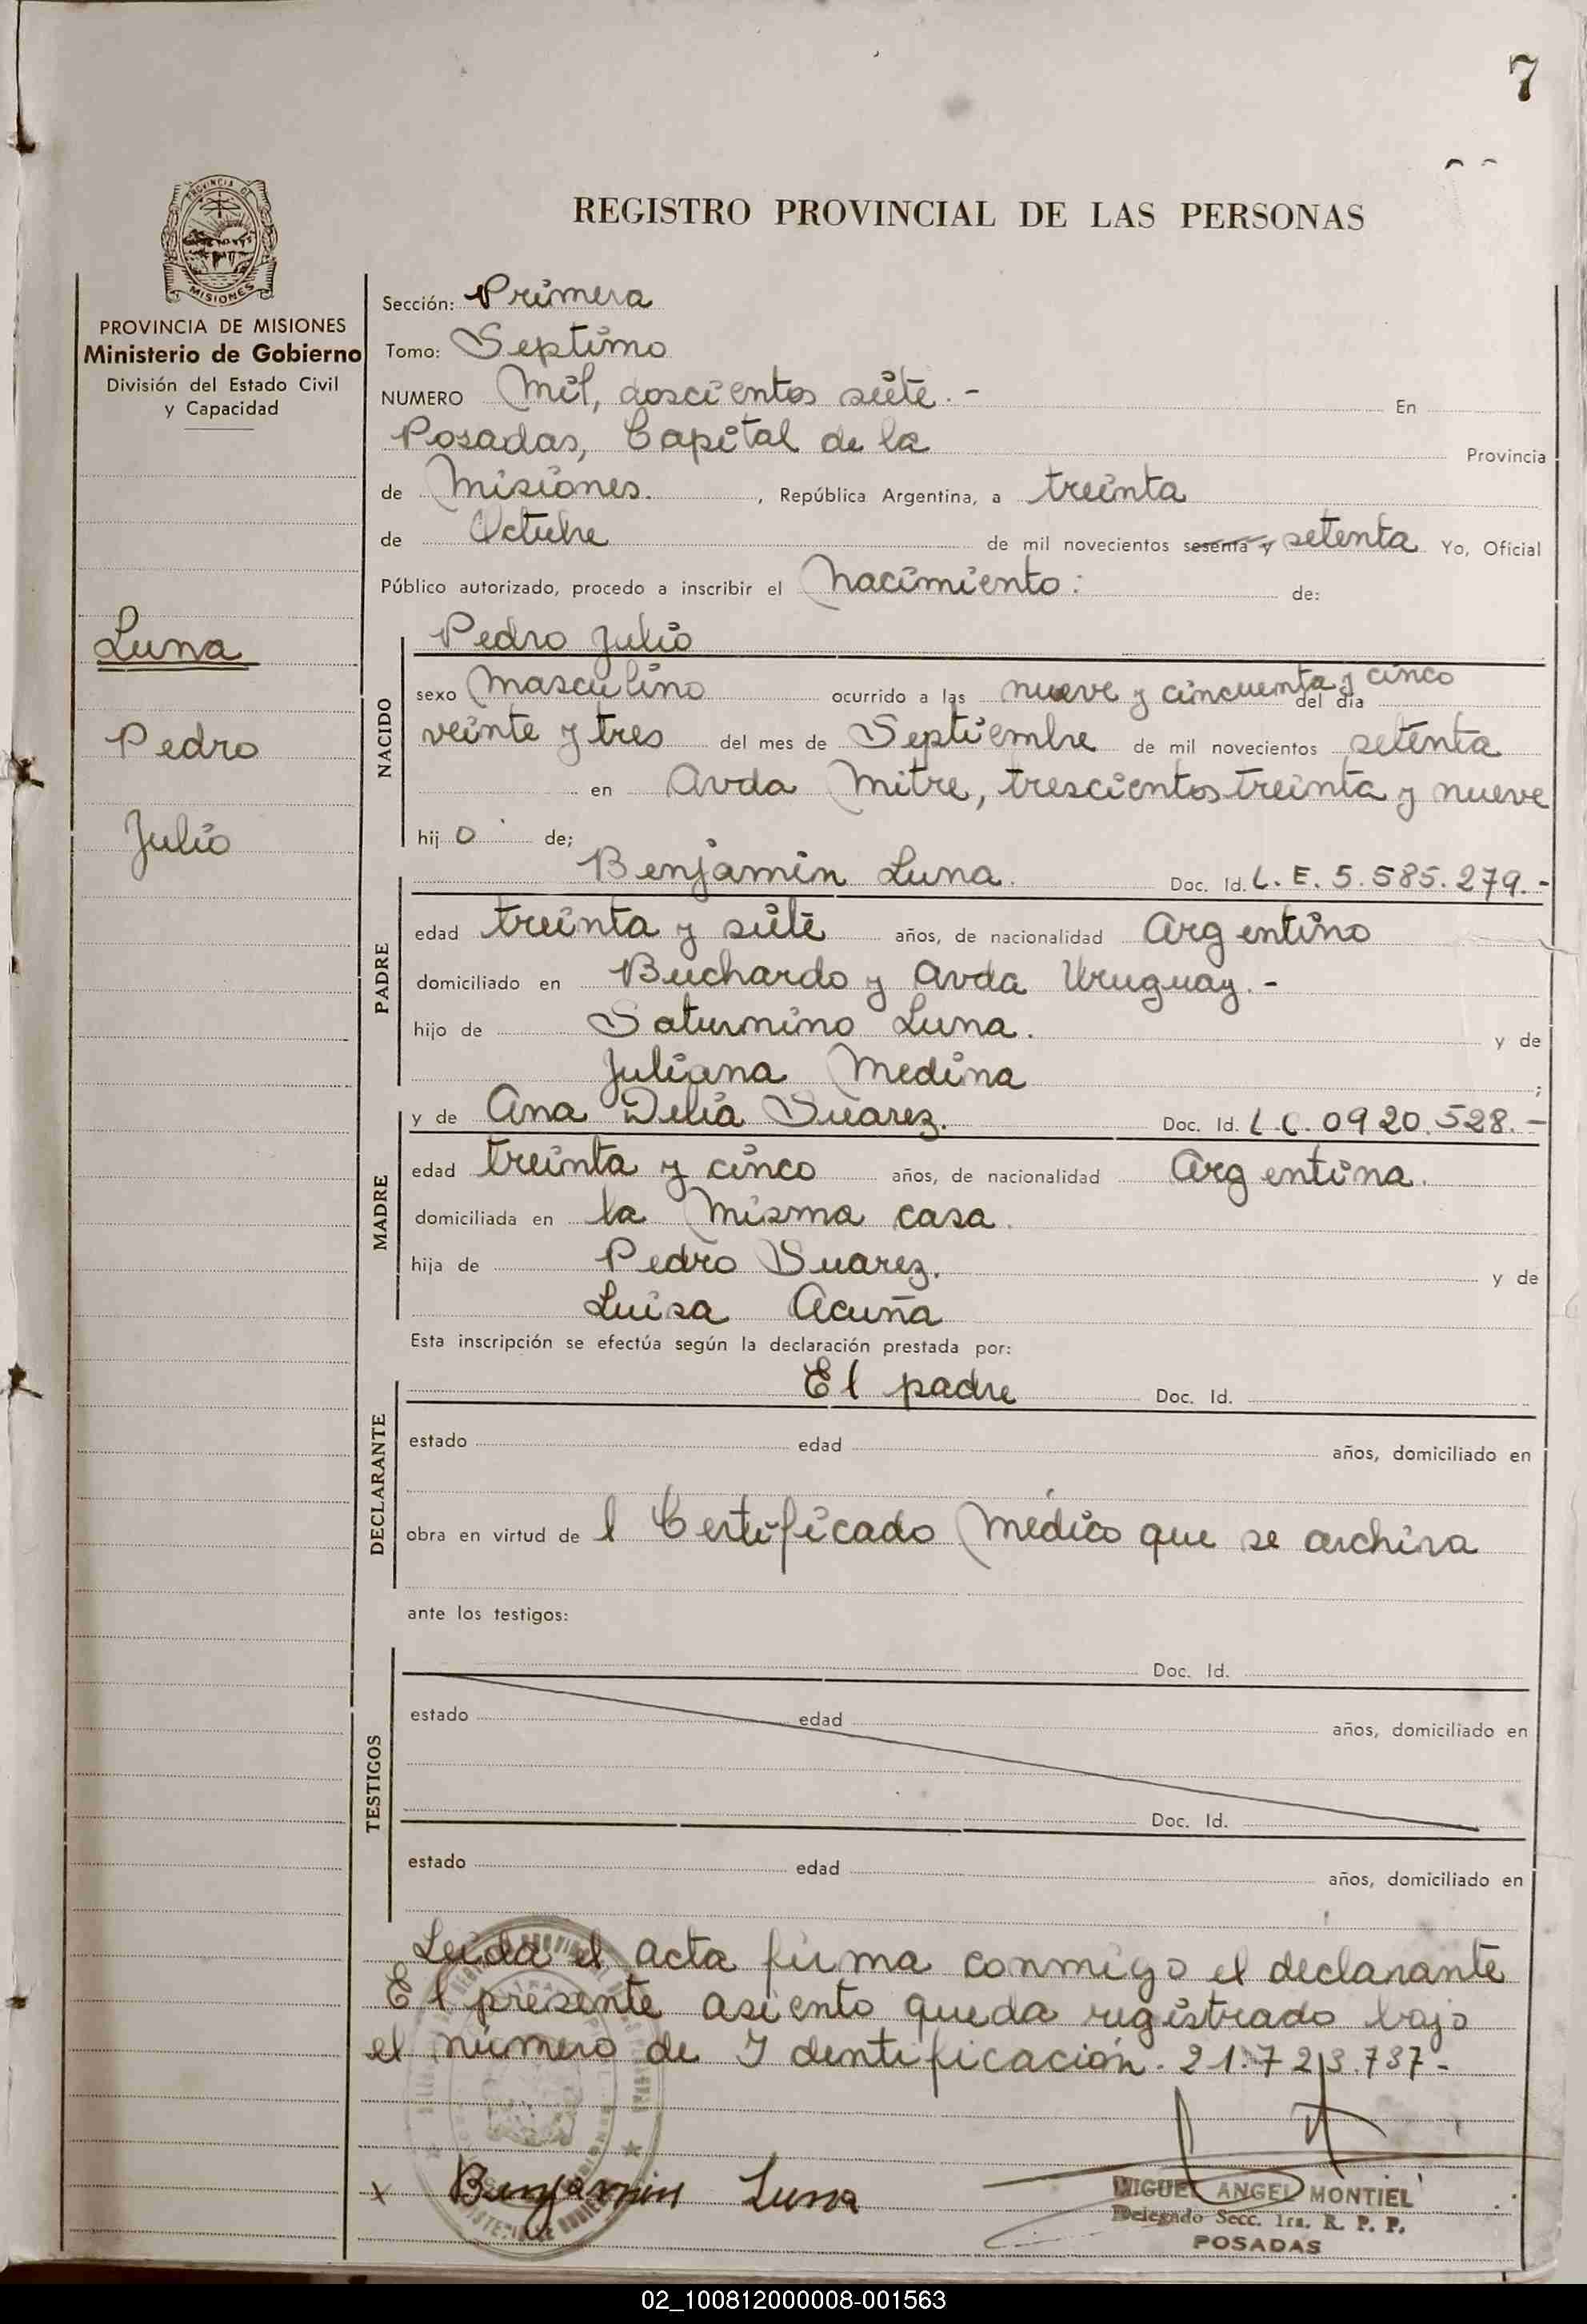 7
PROVINCIA DE
MISIONES
REGISTRO PROVINCIAL DE LAS PERSONAS
PROVINCIA DE MISIONES
Ministerio de Gobierno
División del Estado Civil
y Capacidad
Luna
Pedro
Julio
Sección: Primera
Tomo: Septimo
NUMERO Mil, doscientos siete.- En
Posadas, Capital de la Provincia
de Misiones. , República Argentina, a treinta
de Octubre de mil novecientos sesenta y setenta Yo, Oficial
Público autorizado, procedo a inscribir el Nacimiento: de:
Pedro Julio
NACIDO
sexo Masculino ocurrido a las nueve y cincuenta y cinco del día
veinte y tres del mes de Septiembre de mil novecientos setenta
en Avda Mitre, trescientos treinta y nueve
hij o de;
Benjamin Luna. Doc. Id. L. E. 5.585.279.-
PADRE
edad treinta y siete años, de nacionalidad Argentino
domiciliado en Buchardo y Avda Uruguay.-
hijo de Saturnino Luna. y de
Juliana Medina ;
y de Ana Delia Suarez. Doc. Id. L.C. 0920.528.-
MADRE
edad treinta y cinco años, de nacionalidad Argentina.
domiciliada en la misma casa.
hija de Pedro Suarez. y de
Luisa Acuña
Esta inscripción se efectúa según la declaración prestada por:
El padre Doc. Id.
DECLARANTE
estado edad años, domiciliado en
obra en virtud de l Certificado Médico que se archiva
ante los testigos:
Doc. Id.
TESTIGOS
estado edad años, domiciliado en
Doc. Id.
estado edad años, domiciliado en
Leida el acta firma conmigo el declarante
El presente asiento queda registrado bajo
el número de Identificación. 21.723.737-
x Benjamin Luna
MIGUEL ANGEL MONTIEL
Delegado Secc. 1ra. R. P. P.
POSADAS
02_100812000008-001563